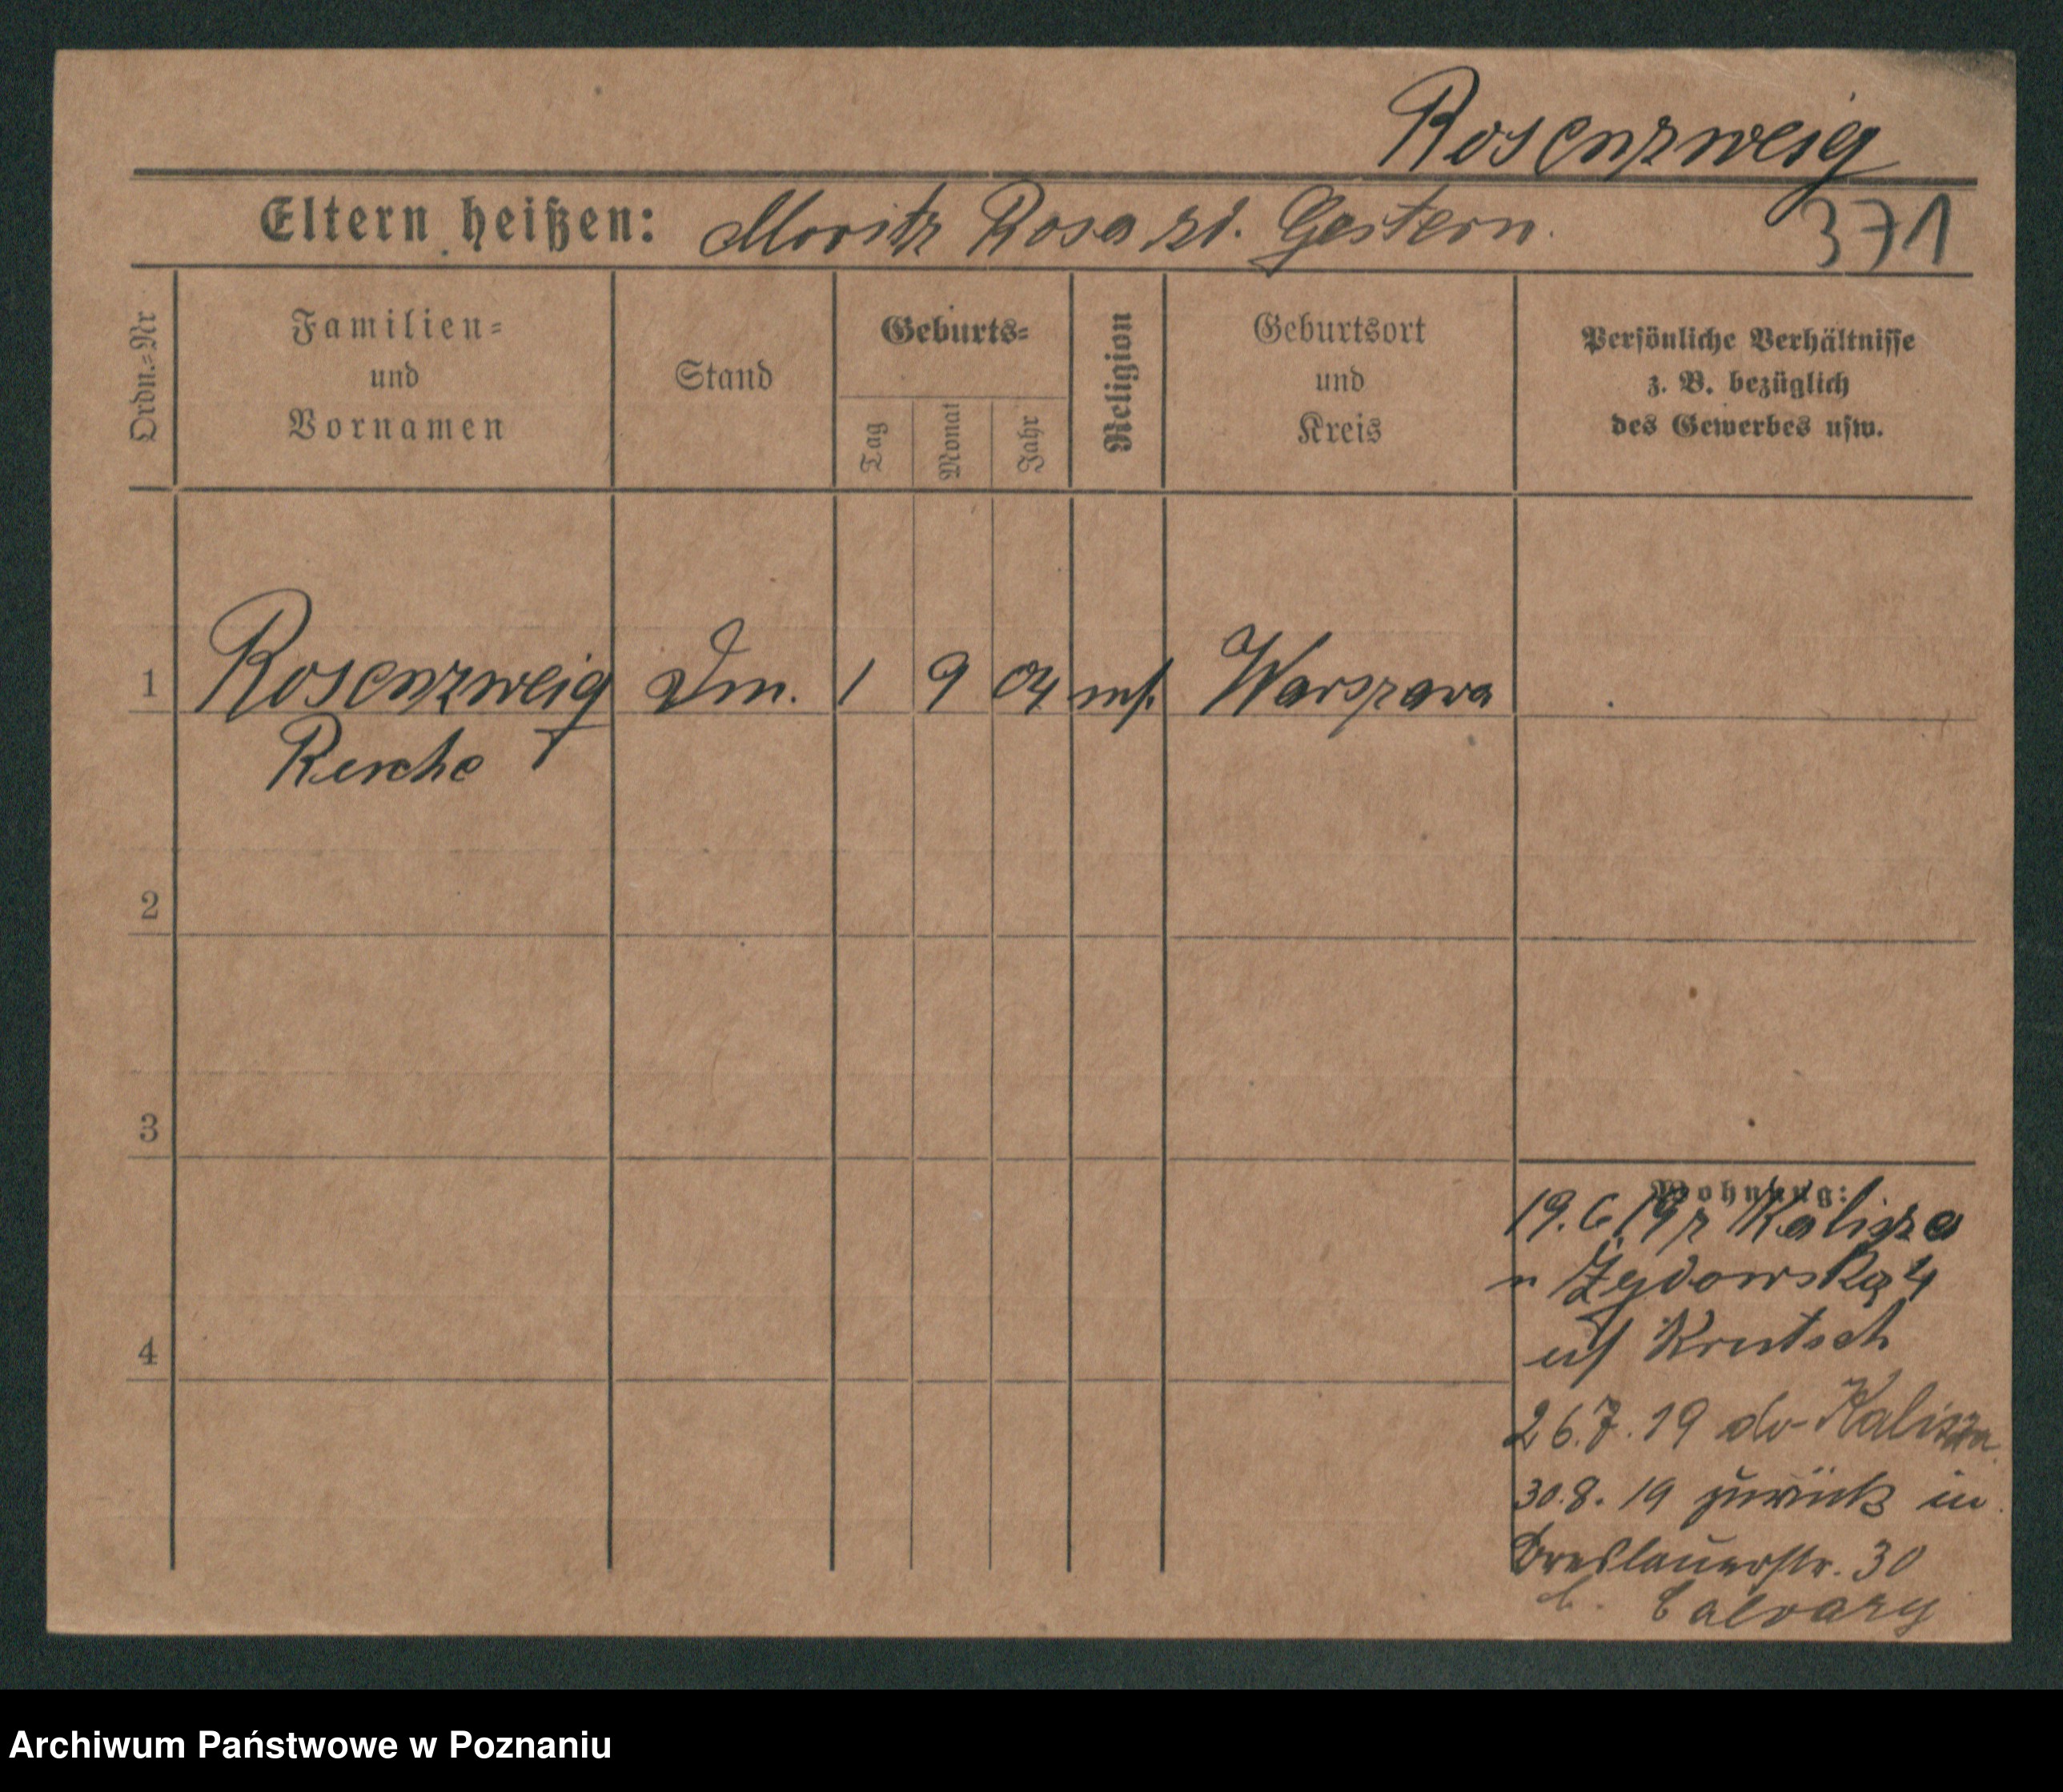 Rosenzweig
Eltern heißen: Moritz Rosa zd. Gestern.
371
Ordn.-Nr
Familien-
und
Vornamen
Stand
Geburts-
Tag
Monat
Jahr
Religion
Geburtsort
und
Kreis
Persönliche Verhältnisse
z. B. bezüglich
des Gewerbes usw.
1 Rosenzweig 1 9 04 Warszawa
2
3
4
Wohnung:
19.6.19 z Kalisza
Żydowska 4
Krutsch
26.7.19 do Kalisza
30.8.19 zurück in
Breslauerstr. 30
b. Calvary
Archiwum Państwowe w Poznaniu